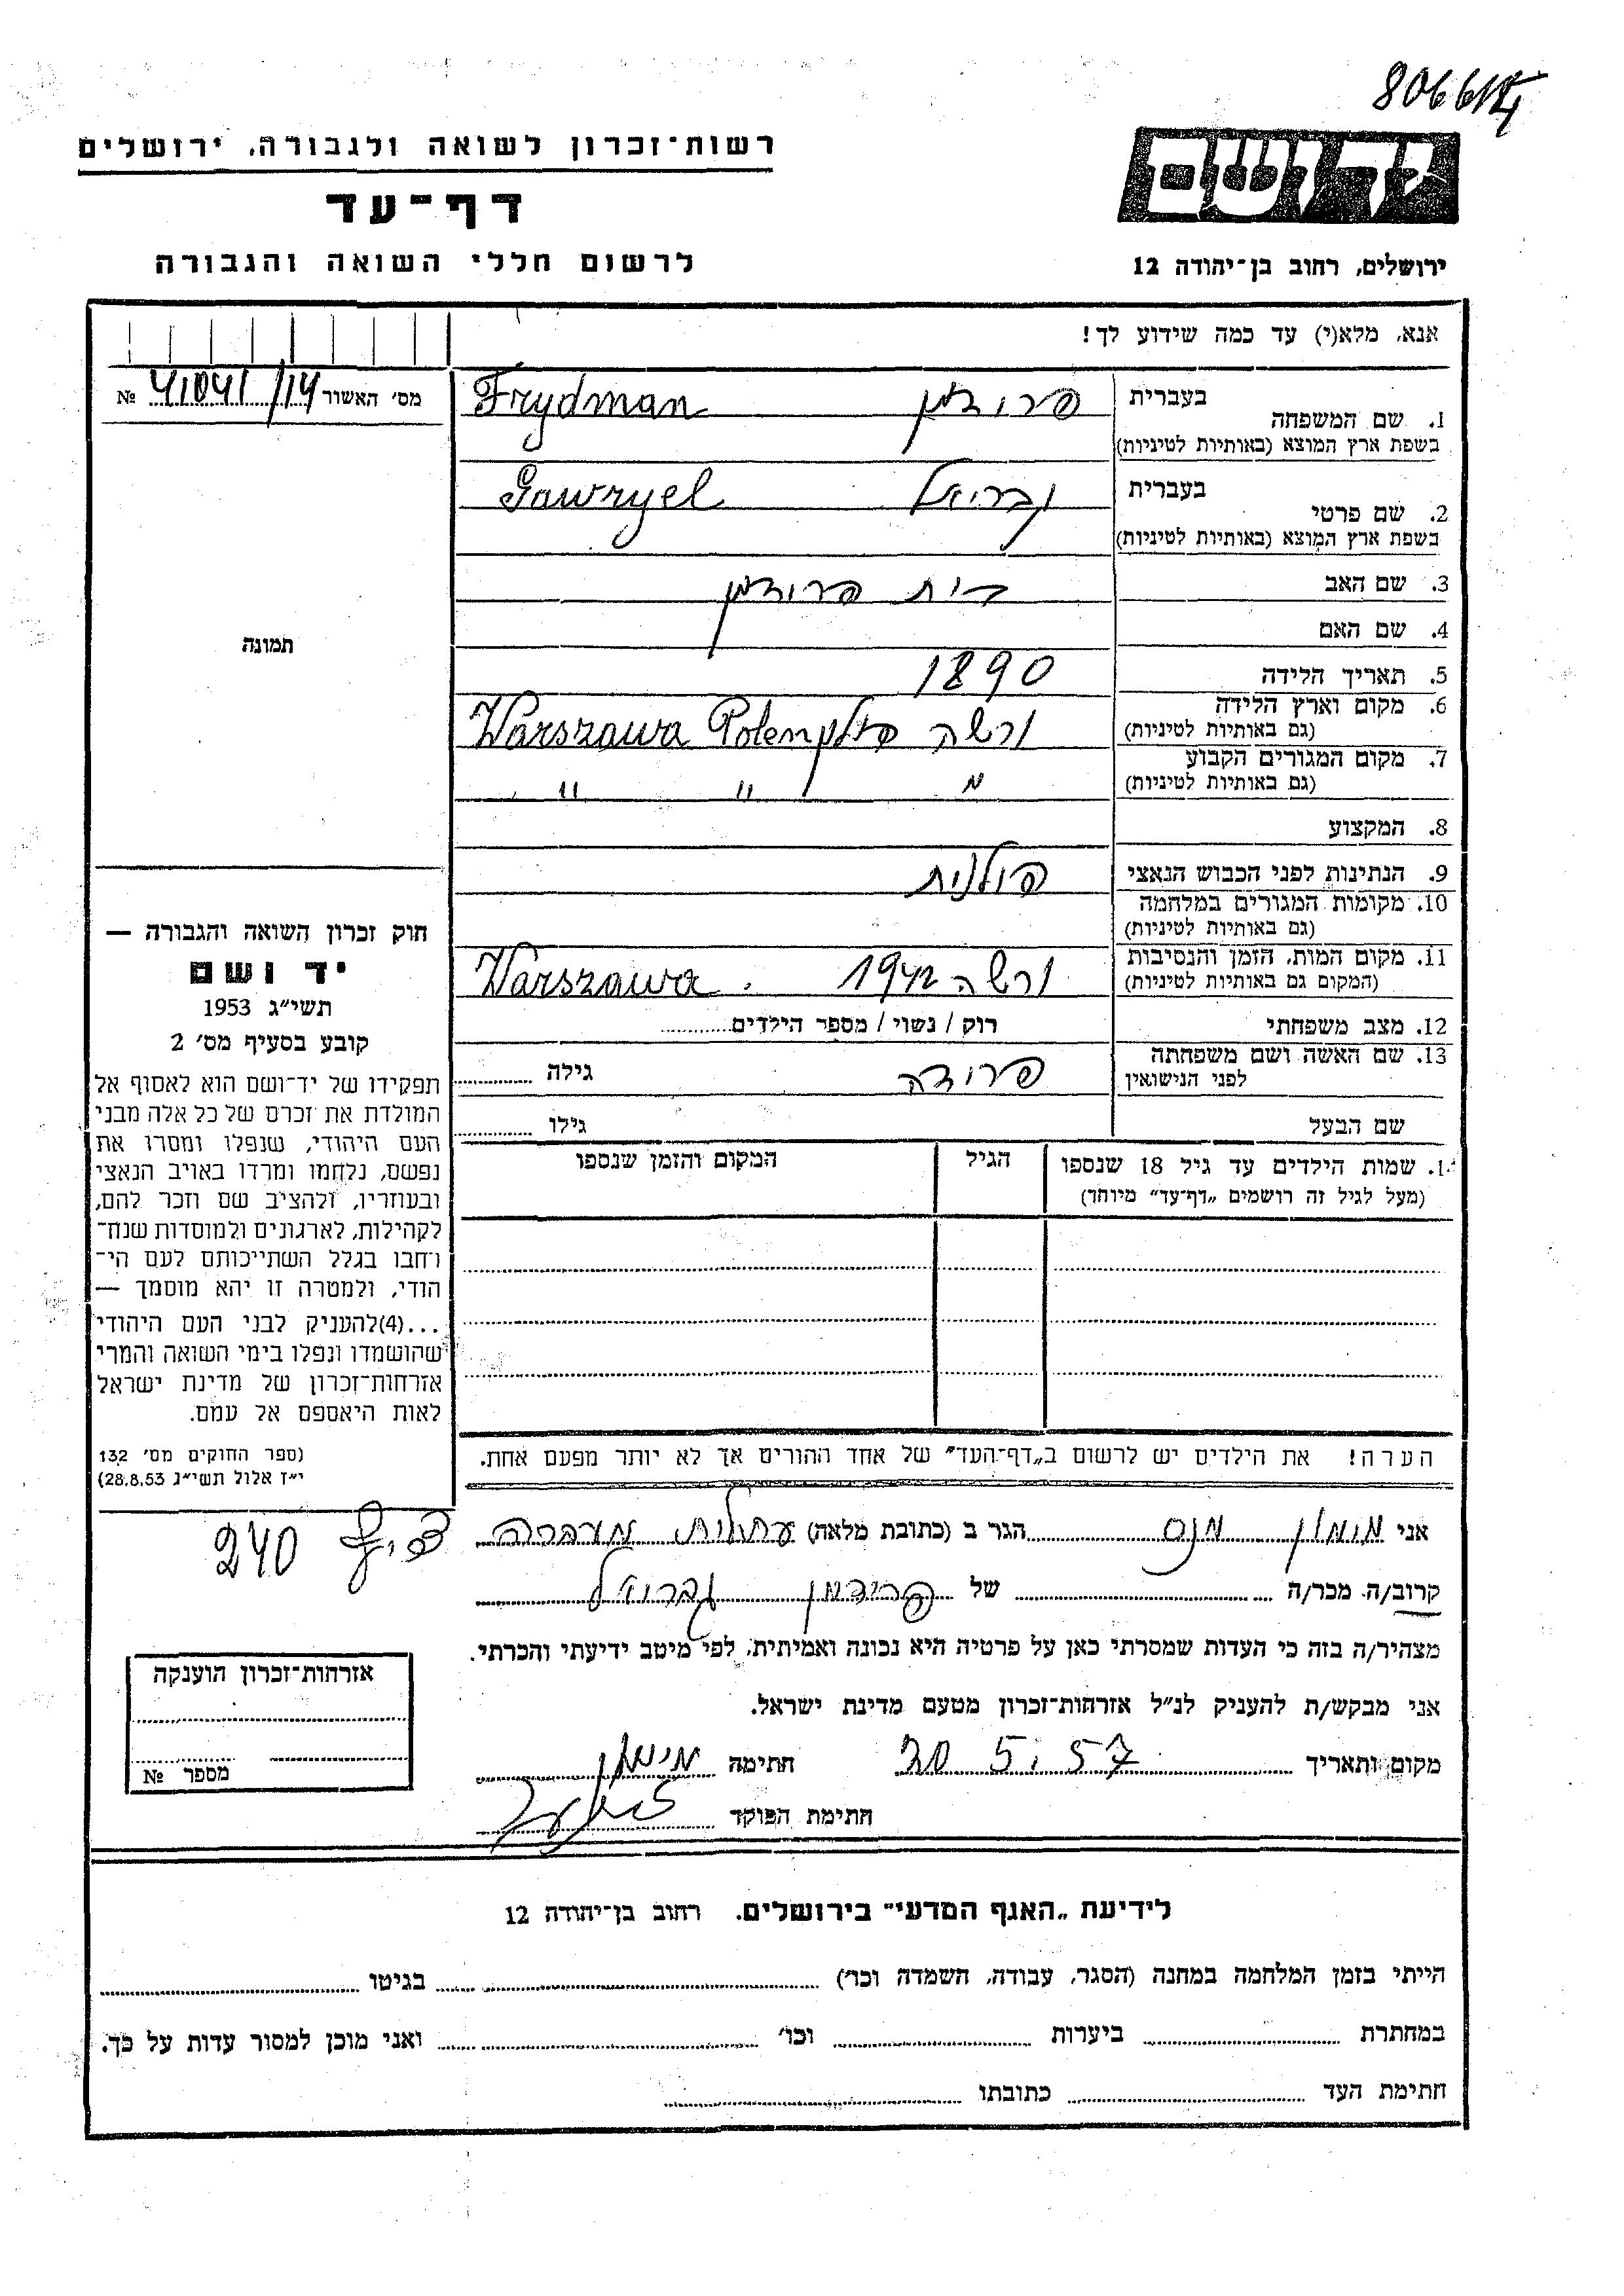 רשות־זכרון לשואה ולגבורה, ירושלים
דף־עד
לרשום חללי השואה והגבורה
ידושם
ירושלים, רחוב בן־יהודה 12
אנא, מלא(י) עד כמה שידוע לך!
מס׳ האשור 41041/14 №
בעברית
1. שם המשפחה
בשפת ארץ המוצא (באותיות לטיניות)
פרידמן Frydman
בעברית
2. שם פרטי
בשפת ארץ המוצא (באותיות לטיניות)
גבריאל Gawryel
3. שם האב
פרידמן
4. שם האם
5. תאריך הלידה 1890
6. מקום וארץ הלידה
(גם באותיות לטיניות)
ורשה פולין Warszawa Polen
7. מקום המגורים הקבוע
(גם באותיות לטיניות)
" " "
8. המקצוע
9. הנתינות לפני הכבוש הנאצי פולנית
10. מקומות המגורים במלחמה
(גם באותיות לטיניות)
11. מקום המות, הזמן והנסיבות
(המקום גם באותיות לטיניות)
ורשה 1942 Warszawa.
12. מצב משפחתי רוק / נשוי / מספר הילדים
13. שם האשה ושם משפחתה
לפני הנישואין
פרידה גילה
שם הבעל גילו
1. שמות הילדים עד גיל 18 שנספו
(מעל לגיל זה רושמים „דף־עד״ מיוחד)
הגיל
המקום והזמן שנספו
הערה! את הילדים יש לרשום ב„דף־העד״ של אחד ההורים אך לא יותר מפעם אחת.
תמונה
חוק זכרון השואה והגבורה —
יד ושם
תשי״ג 1953
קובע בסעיף מס׳ 2
תפקידו של יד־ושם הוא לאסוף אל
המולדת את זכרם של כל אלה מבני
העם היהודי, שנפלו ומסרו את
נפשם, נלחמו ומרדו באויב הנאצי
ובעוזריו, ולהציב שם וזכר להם,
לקהילות, לארגונים ולמוסדות שנח־
רחבו בגלל השתייכותם לעם הי־
הודי, ולמטרה זו יהא מוסמך —
...(4)להעניק לבני העם היהודי
שהושמדו ונפלו בימי השואה והמרי
אזרחות־זכרון של מדינת ישראל
לאות היאספם אל עמם.
(ספר החוקים מס׳ 132
י״ז אלול תשי״ג 28.8.53)
אני מנס הגר ב (כתובת מלאה) עתלית מעברה
240
קרוב/ה. מכר/ה של פרידמן גבריאל
מצהיר/ה בזה כי העדות שמסרתי כאן על פרטיה היא נכונה ואמיתית, לפי מיטב ידיעתי והכרתי.
אני מבקש/ת להעניק לנ״ל אזרחות־זכרון מטעם מדינת ישראל.
מקום ותאריך 20 5. 57 חתימה
חתימת הפוקד
אזרחות־זכרון הוענקה
מספר №
לידיעת „האגף המדעי״ בירושלים. רחוב בן־יהודה 12
הייתי בזמן המלחמה במחנה (הסגר, עבודה, השמדה וכו׳) בגיטו
במחתרת ביערות וכו׳ ואני מוכן למסור עדות על כך.
חתימת העד כתובתו